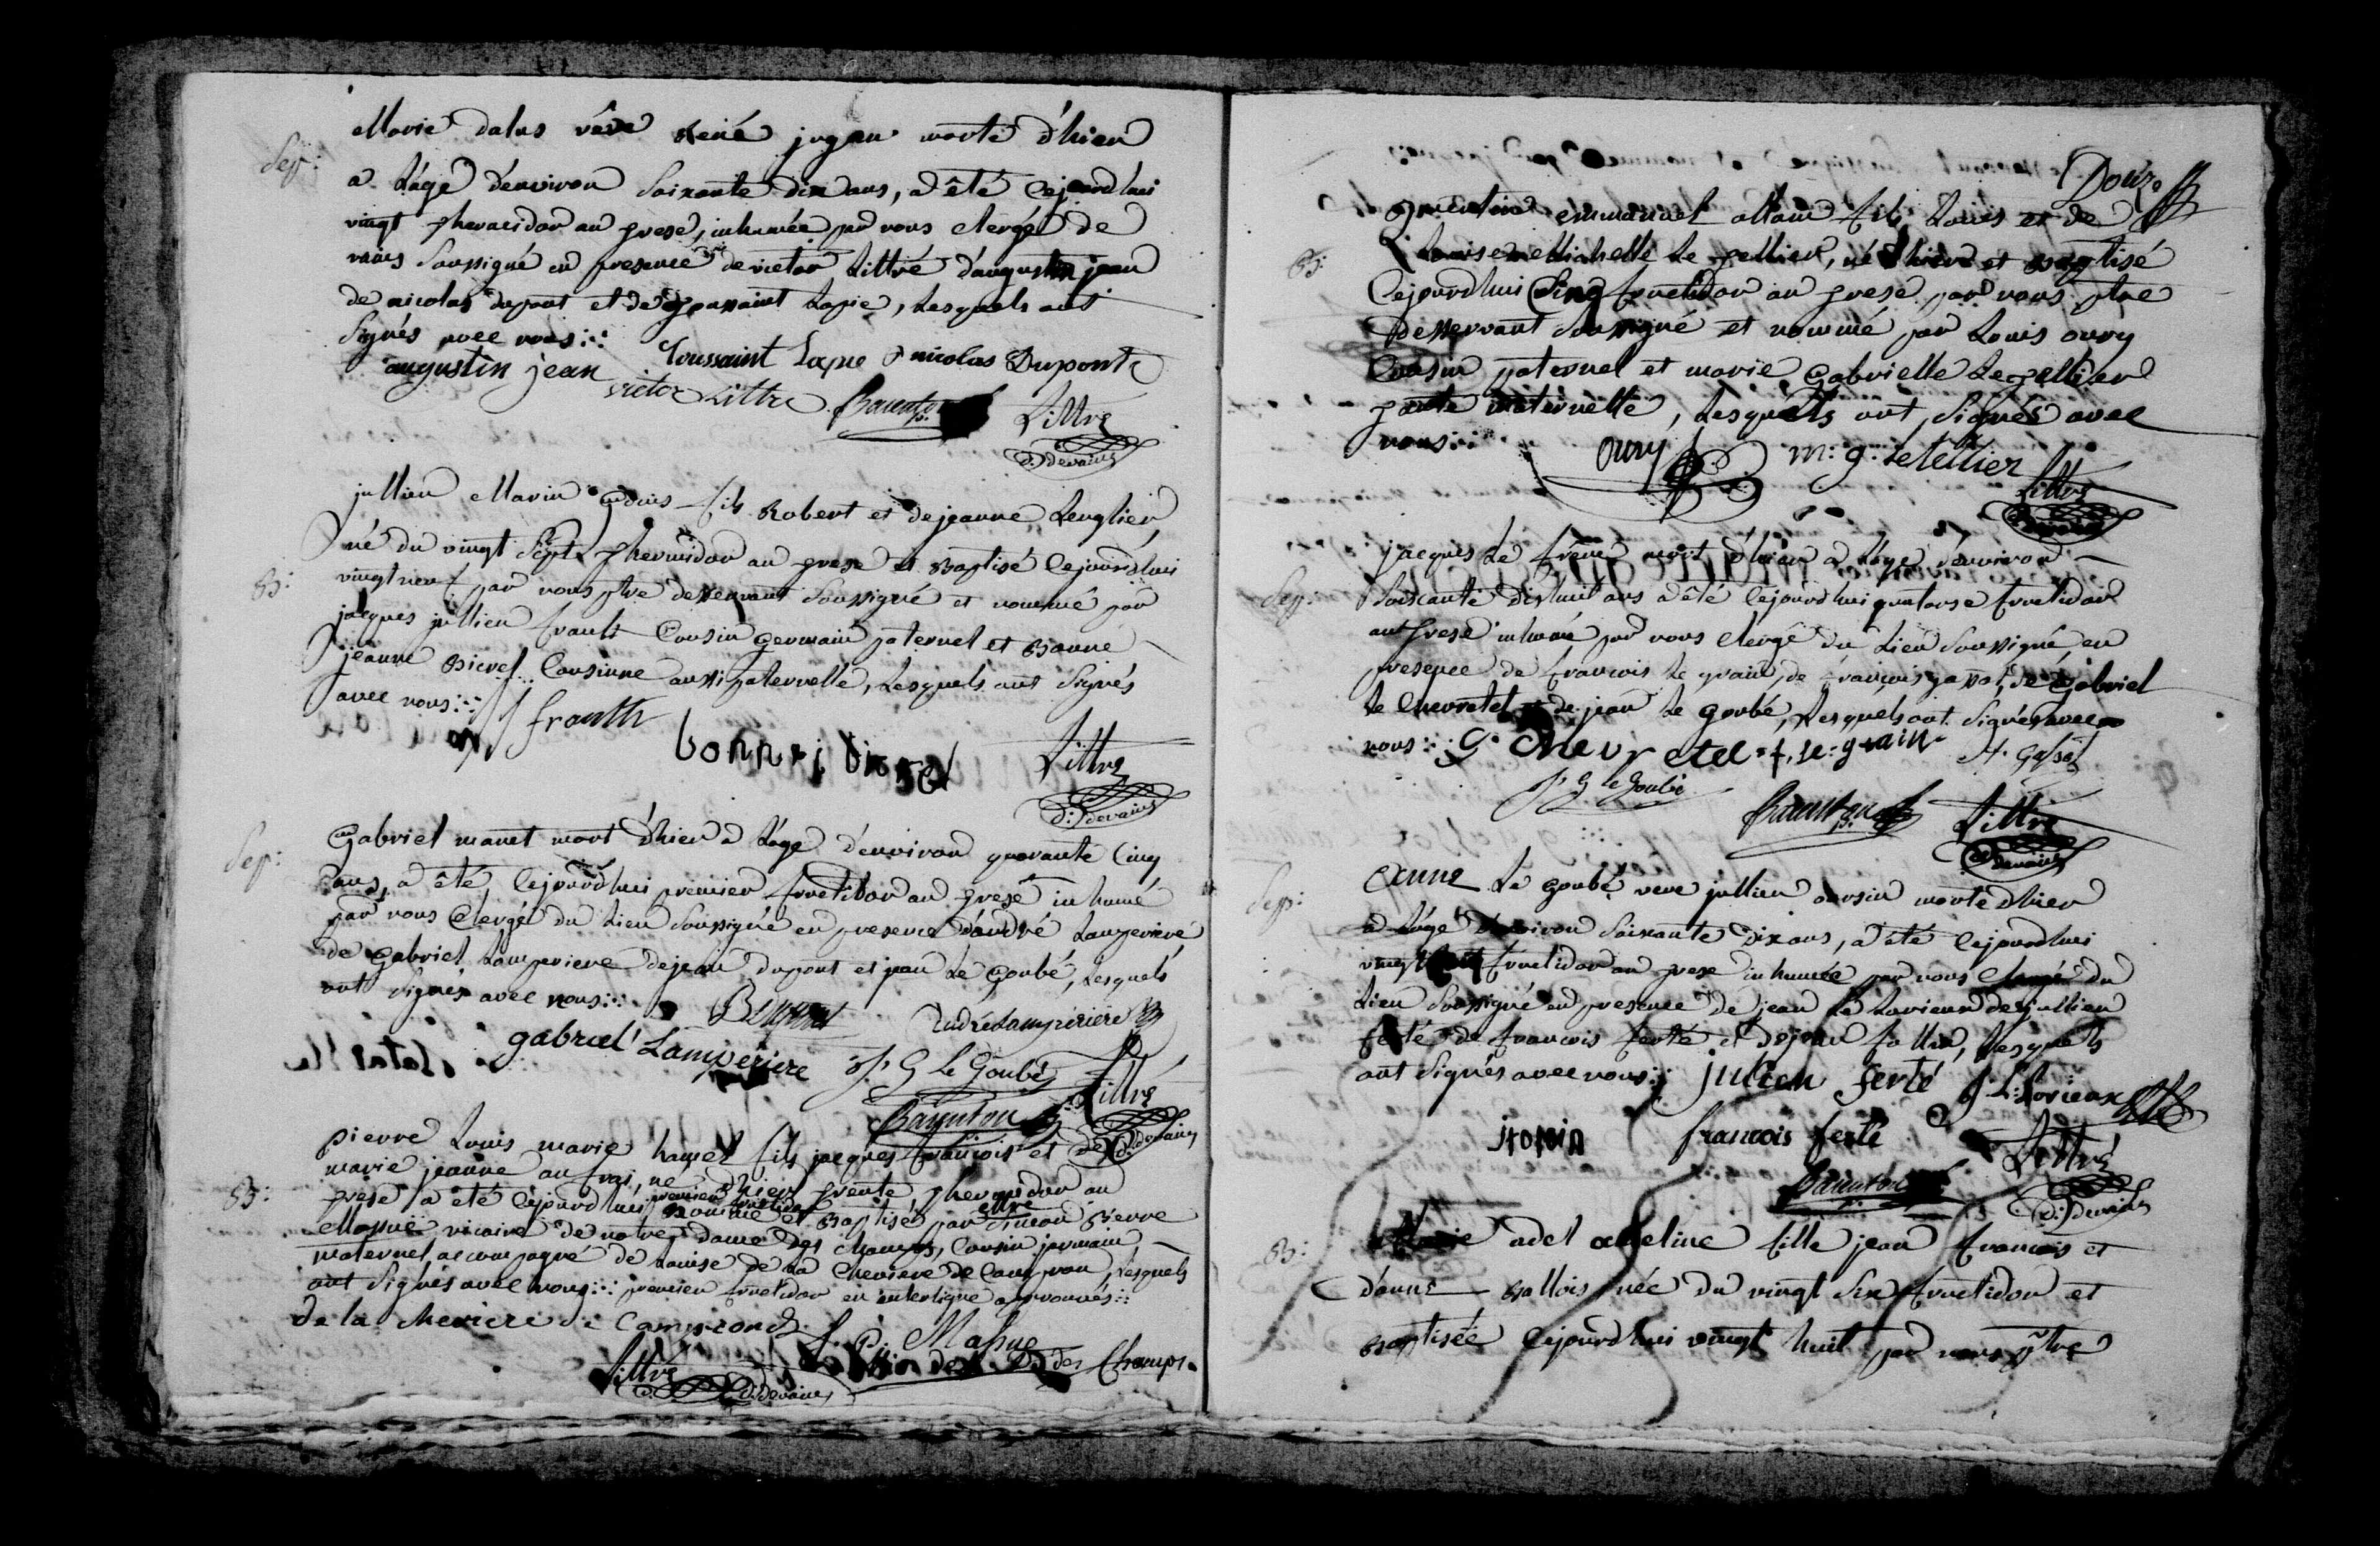 Marie dalus vêve René jugan morte d'hier
Sep: a l'âge d'environ soixante dix ans, a été cejourdhui
vingt thermidor an treze, inhumée par nous clergé de
vains soussigné en presence de victor Littré d'augustin jean
de nicolas dupont et de toussaint Lapie, lesquels ont
signés avec nous:
augustin jean Toussaint Lapie nicolas Dupont
victor Littre Barenton p. Littré
d: devains
jullien Marin fils Robert et de jeanne Lenglier,
né du vingt sept thermidor an treze et Baptisé cejourdhui
B: vingt neuf par nous ptre desservant soussigné et nommé par
jacques jullien frault Cousin germain paternel et Bonne
jeanne Bicrel Cousinne aussi paternelle, lesquels ont signés
avec nous: j j frault
bonne j. Littré
d: devains
Sep: Gabriel manet mort d'hier a l'âge d'environ quarante Cinq
ans, a été, cejourdhui premier fructidor an treze inhumé
par nous Clergé du Lieu soussigné en presence d'andré Lamperiere
de Gabriel Lamperiere de jean dupont et jean Le Goubé, lesquels
ont signés avec nous:
André Lamperiere
gabriel Lamperiere J. G Le Goubé Littré
Barenton p. d: devains
pierre Louis marie hamel fils jacques francois et de
marie jeanne aufrai, né d'hier trente thermidor an
B: treze a été cejourdhui premier fructidor nommé et Baptisé par mtre Simeon Pierre
Mahue vicaire de notre dame des champs, Cousin jermain
maternel, accompagné de Louise de la Cheviere de Campron, lesquels
ont signés avec nous: premier fructidor en interligne approuvés:
de la cheviere de Campron
S. P: Mahue
Littré de N. D. des Champs.
d: devains
Douze
emmanuel allain fils Louis et de
B: Louise Michelle Le tellier, né d'hier et Baptisé
Cejourdhui Cinq fructidor an treze par nous ptre
desservant soussigné et nommé par Louis oury
Cousin paternel et marie Gabrielle Le tellier
tante maternelle, lesquels ont signés avec
nous:
Oury m: g: Letellier Littré
jacques Le frêne mort d'hier a l'âge d'environ
Sep: Soixante dixhuit ans a été cejourdhui quatorse fructidor
an treze inhumé par nous clergé du Lieu soussigné, en
presence de francois Le grain, de francois gassot, de Gabriel
Le Chevretel et de jean Le Goubé, lesquels ont signés avec
nous: G. Chevretel f. le. grain
J. G le Goubé
Barenton p. Littré
d: devains
Sep: Anne Le Goubé veve jullien morte d'hier
a l'âge d'environ soixante dix ans, a été cejourdhui
vingt fructidor an treze inhumée par nous clergé du
Lieu soussigné en presence de jean Le Lorieux de jullien
ferté de francois ferté et de jean, lesquels
ont signés avec nous: julien ferté J. L: Lorieux
francois ferté Littré
Barenton p. d: devains
B: Marie adel adeline fille jean francois et
d'anne née du vingt six fructidor et
Baptisée cejourdhui vingt huit par nous ptre